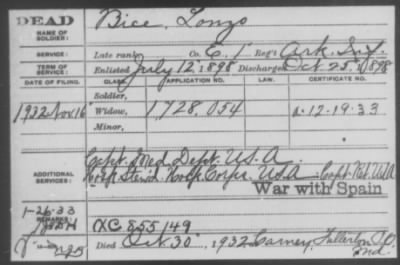 DEAD
NAME OF SOLDIER: Bice, Lonzo
SERVICE: Late rank, Co. C, 1" Reg't Ark. Inf.
TERM OF SERVICE: Enlisted July 12, 1898 Discharged Oct 25", 1898
DATE OF FILING. CLASS. APPLICATION NO. LAW. CERTIFICATE NO.
Soldier,
1932 Nov 16" Widow, 1,728,054 12-19-33
Minor,
ADDITIONAL SERVICES:
Capt. Med. Dept. U.S.A.
Hosp. Stew. Hosp. Corps. U.S.A. Capt. Ret. U.S.A.
War with Spain
1-26-33
REMARKS:
XC 855149
Died Oct 30", 1932 Fullerton